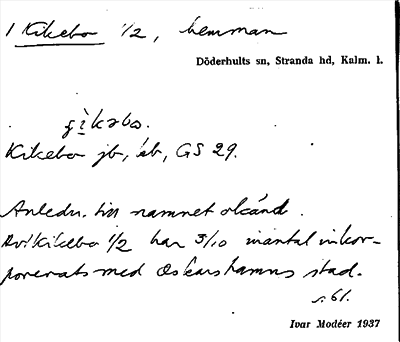 1 Kikebo 1/2, hemman
Döderhults sn, Stranda hd, Kalm. l.
Kikebo jb, äb, GS 29.
Anledn. till namnet okänd.
Av Kikebo 1/2 har 3/10 mantal inkor-
porerats med Oskarshamns stad.
s. 61.
Ivar Modéer 1937